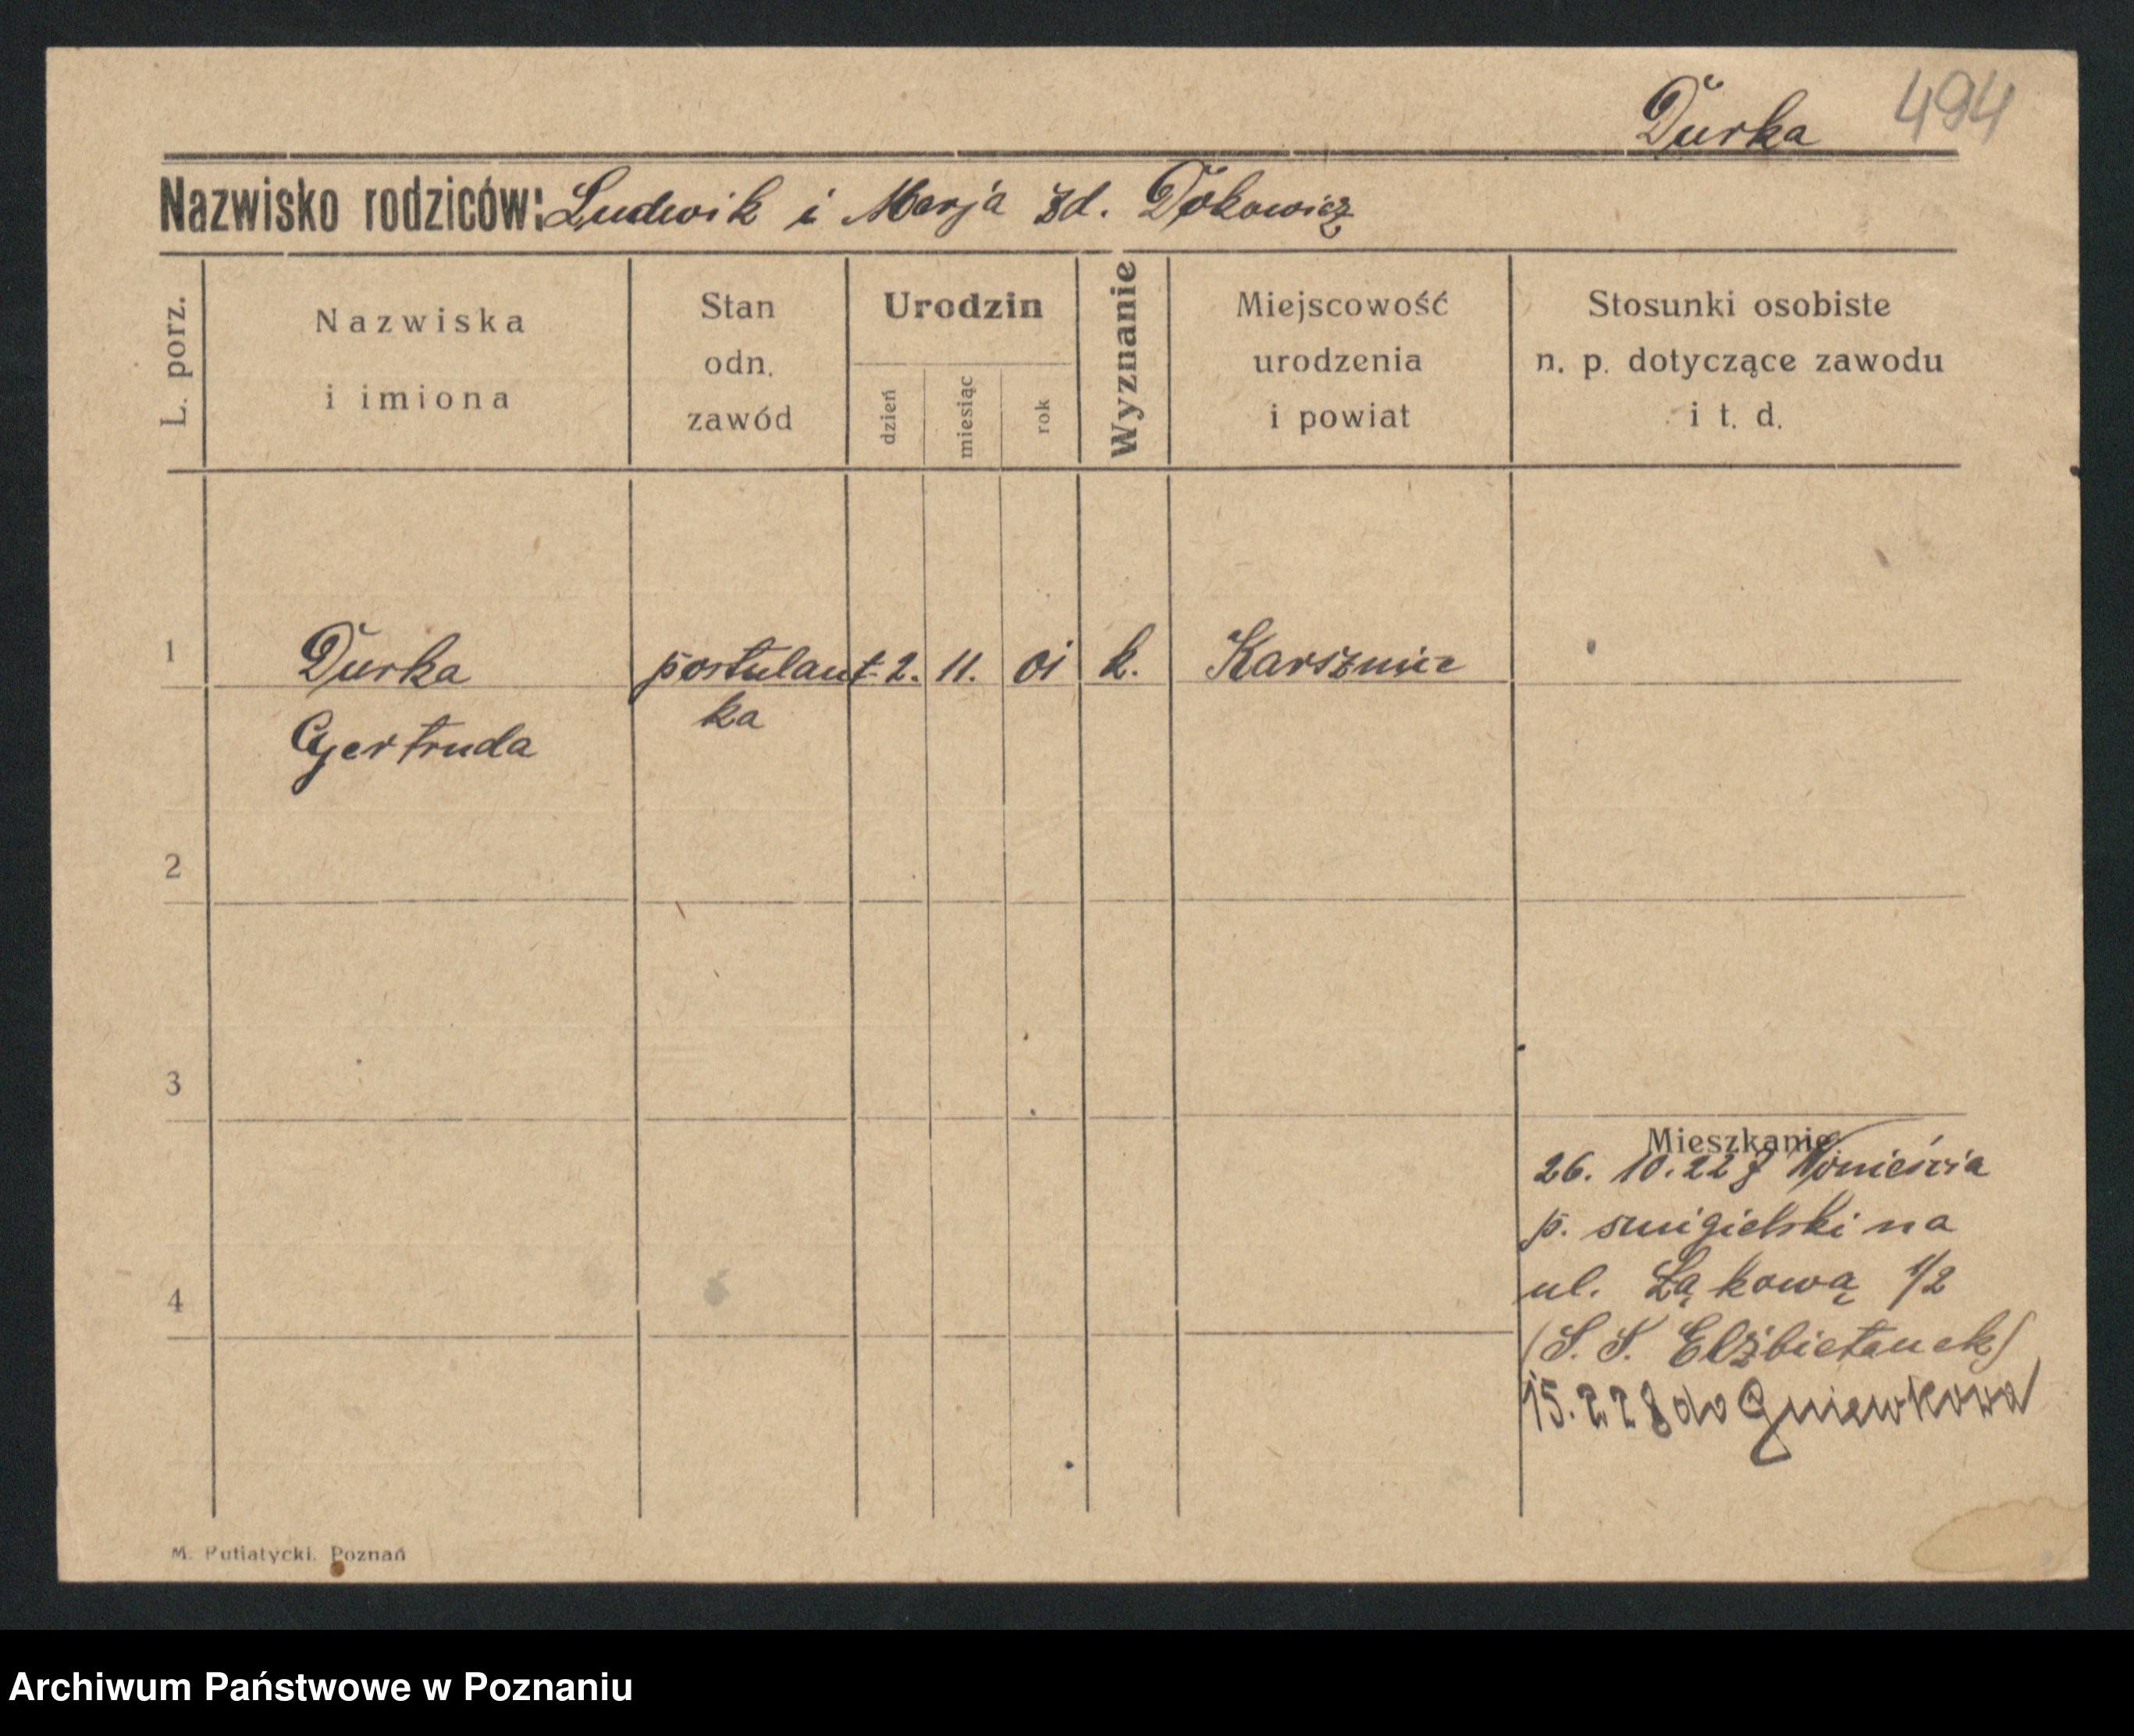 Durka 494
Nazwisko rodziców: Ludwik i Marja zd. Dokowicz
L. porz.
Nazwiska
i imiona
Stan
odn.
zawód
Urodzin
dzień
miesiąc
rok
Wyznanie
Miejscowość
urodzenia
i powiat
Stosunki osobiste
n. p. dotyczące zawodu
i t. d.
1 Durka postulant- 2. 11. 01 k.
ka
Gertruda
2
3
Mieszkanie
26. 10. 22 z Wonieścia
p. smigielski na
ul. Łąkową 1/2
4
(S. S. Elżbietanek)
15. 2 28 do Gniewkowa
M. Putiatycki, Poznań
Archiwum Państwowe w Poznaniu